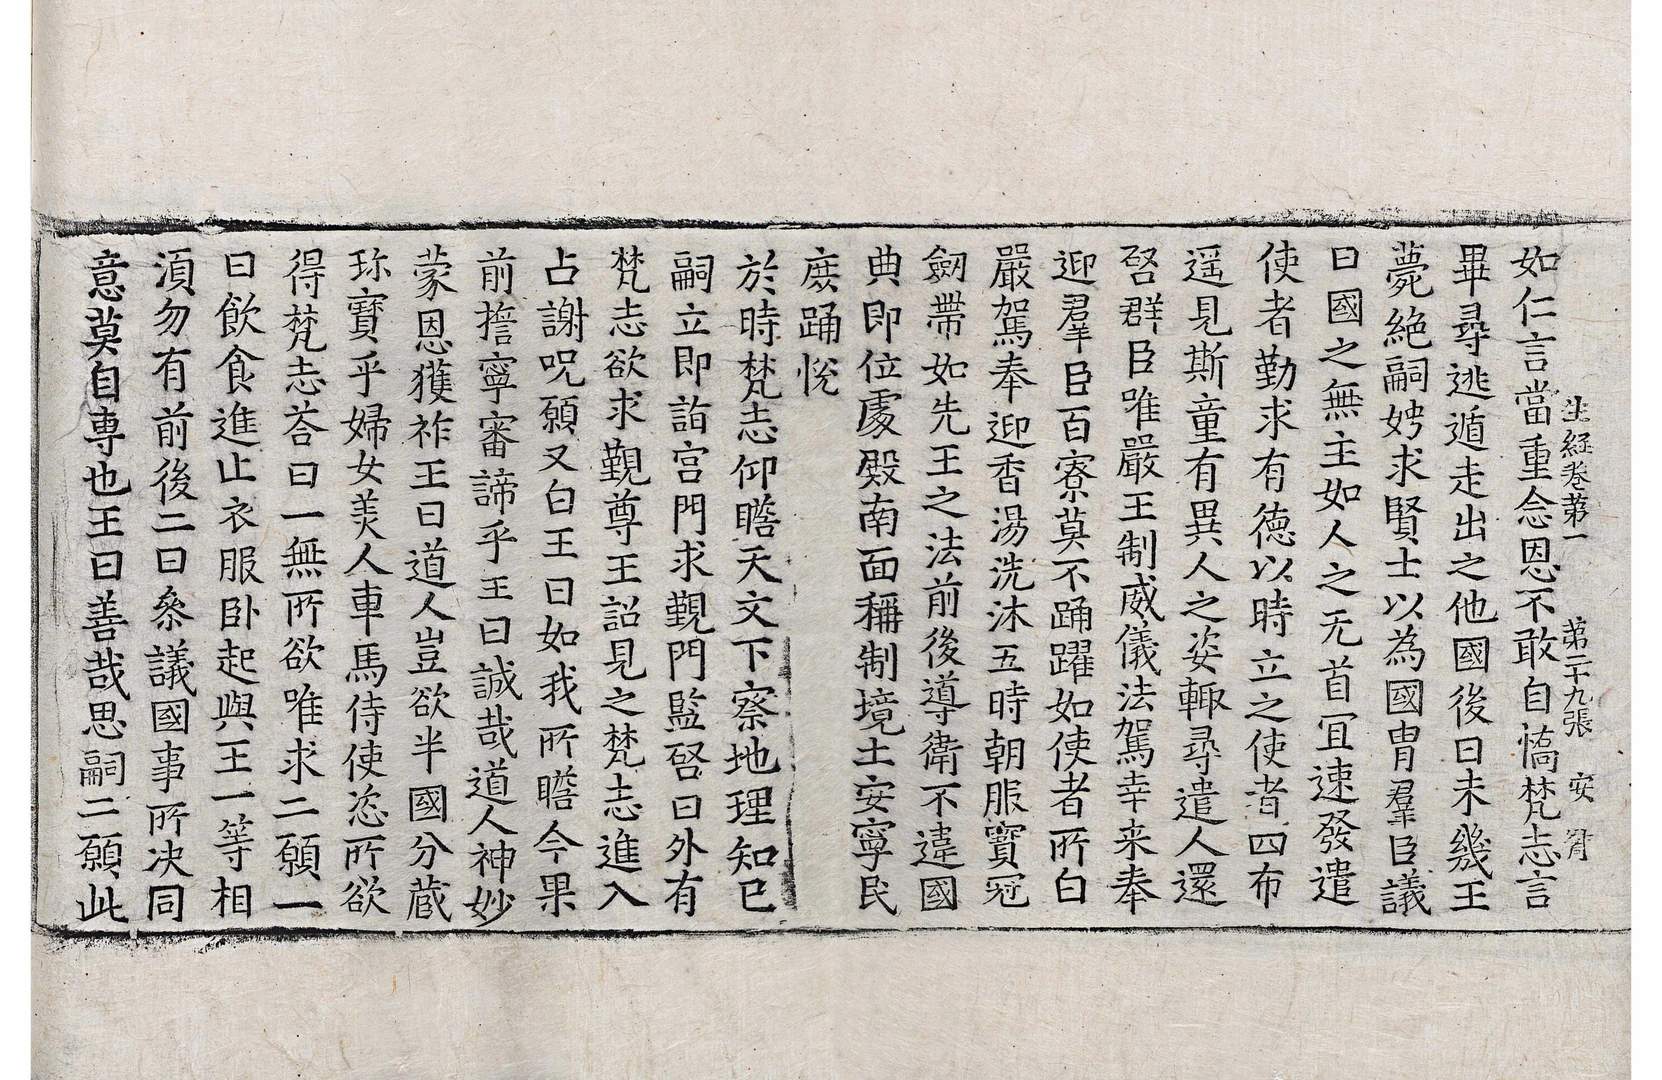 生經卷第一　第二十九張　安　
如仁言當重念恩不敢自憍梵志言
畢尋逃遁走出之他國後曰未幾王
薨絶嗣娉求賢士以為國胄羣臣議
曰國之無主如人之无首冝速發遣
使者勤求有德以時立之使者四布
遥見斯童有異人之姿輙尋遣人還
啓群臣唯嚴王制威儀法駕幸来奉
迎羣臣百寮莫不踊躍如使者所白
嚴駕奉迎香湯洗沐五時朝服寶冠
劒帶如先王之法前後導衛不違國
典即位處殿南面稱制境土安寧民
庶踊悅
於時梵志仰瞻天文下察地理知已
嗣立即詣宫門求覲門監啓曰外有
梵志欲求覲尊王詔見之梵志進入
占謝呪願又白王曰如我所瞻今果
前擔寧審諦乎王曰誠哉道人神妙
蒙恩獲祚王曰道人豈欲半國分藏
珎寶乎婦女美人車馬侍使恣所欲
得梵志荅曰一無所欲唯求二願一
曰飲食進止衣服卧起與王一等相
湏勿有前後二曰叅議國事所决同
意莫自専也王曰善哉思嗣二願此